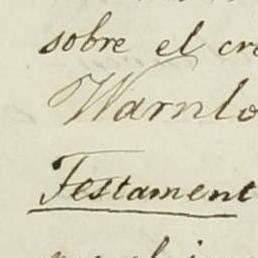 sobre el cre
Warnlo
Testament